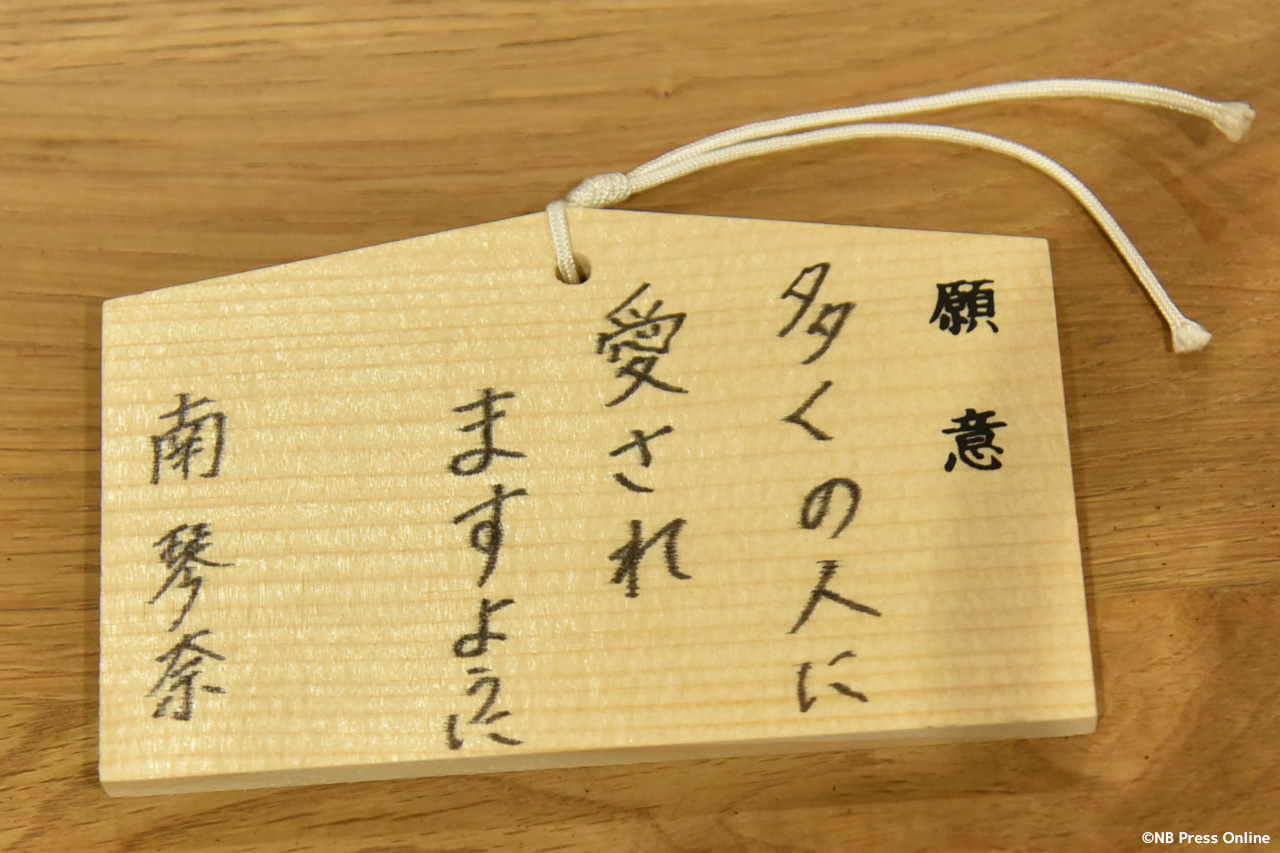 願意
多くの人に
愛され
ますように
南 琴奈
©NB Press Online